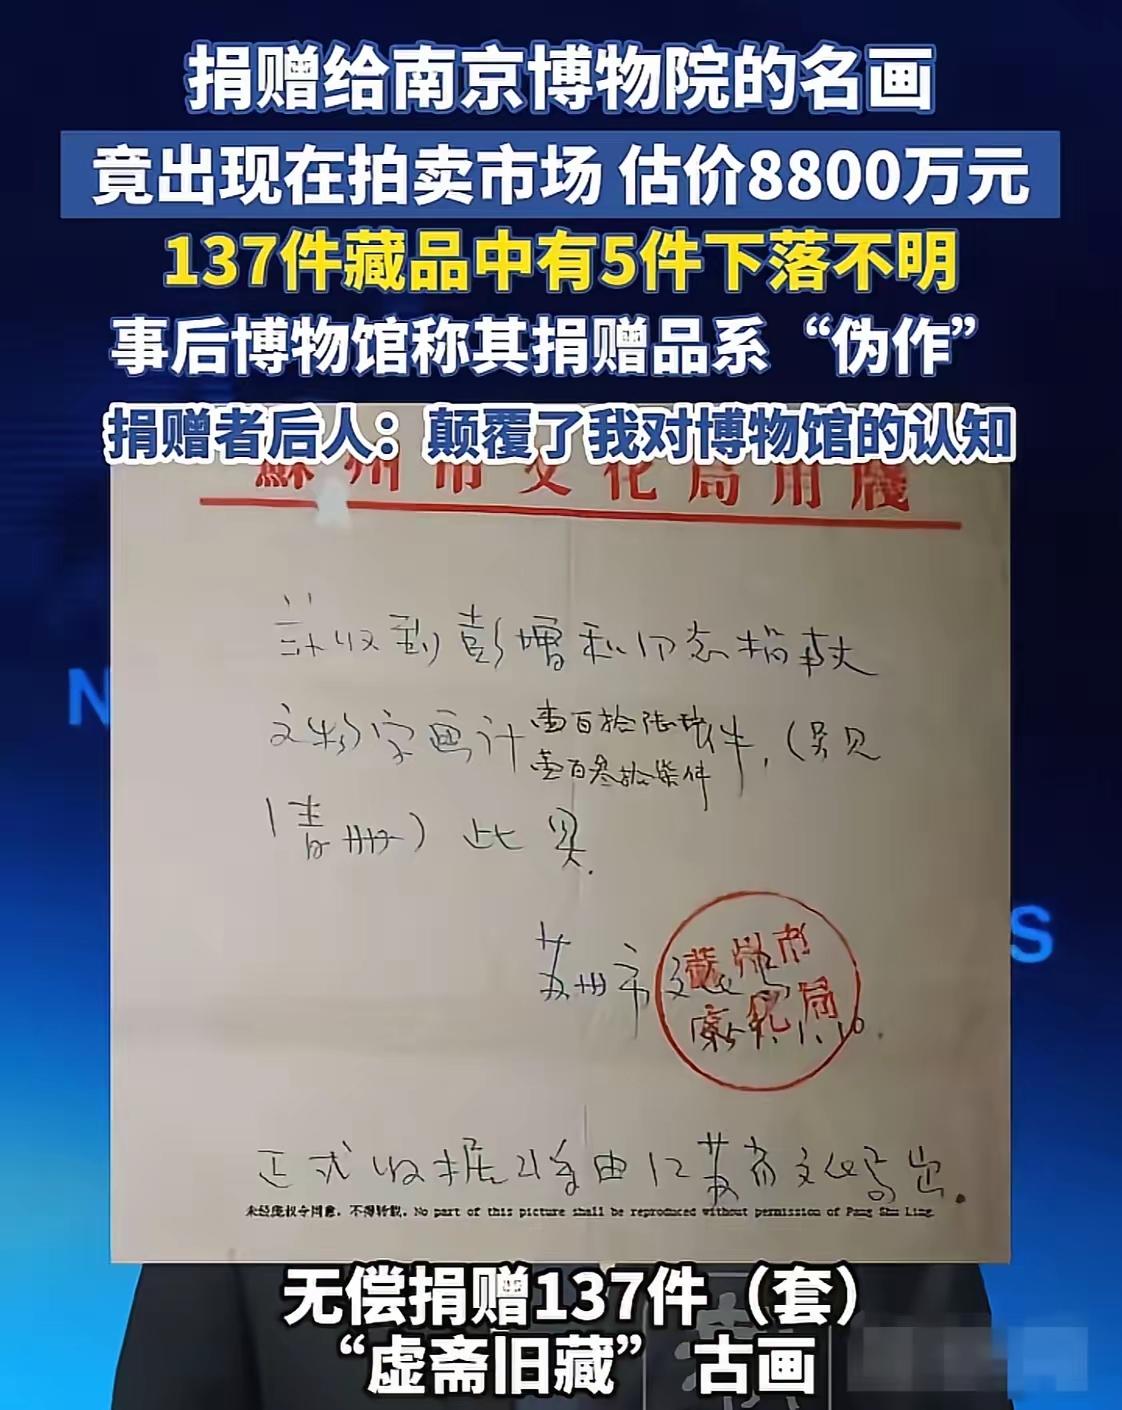 捐赠给南京博物院的名画
竟出现在拍卖市场 估价8800万元
137件藏品中有5件下落不明
事后博物馆称其捐赠品系“伪作”
捐赠者后人：颠覆了我对博物馆的认知
蘇州市文化局用牋
兹收到 同志捐献
文物字画计 壹百叁拾柒件 件，（另见
清册）此具.
苏州市文化局
蘇州市
文化局
正式收据将由江苏省文化局出.
未经庞叔令同意，不得转载，No part of this picture shall be reproduced without permission of Pang Shu Ling.
N
S
无偿捐赠137件（套）
“虚斋旧藏” 古画